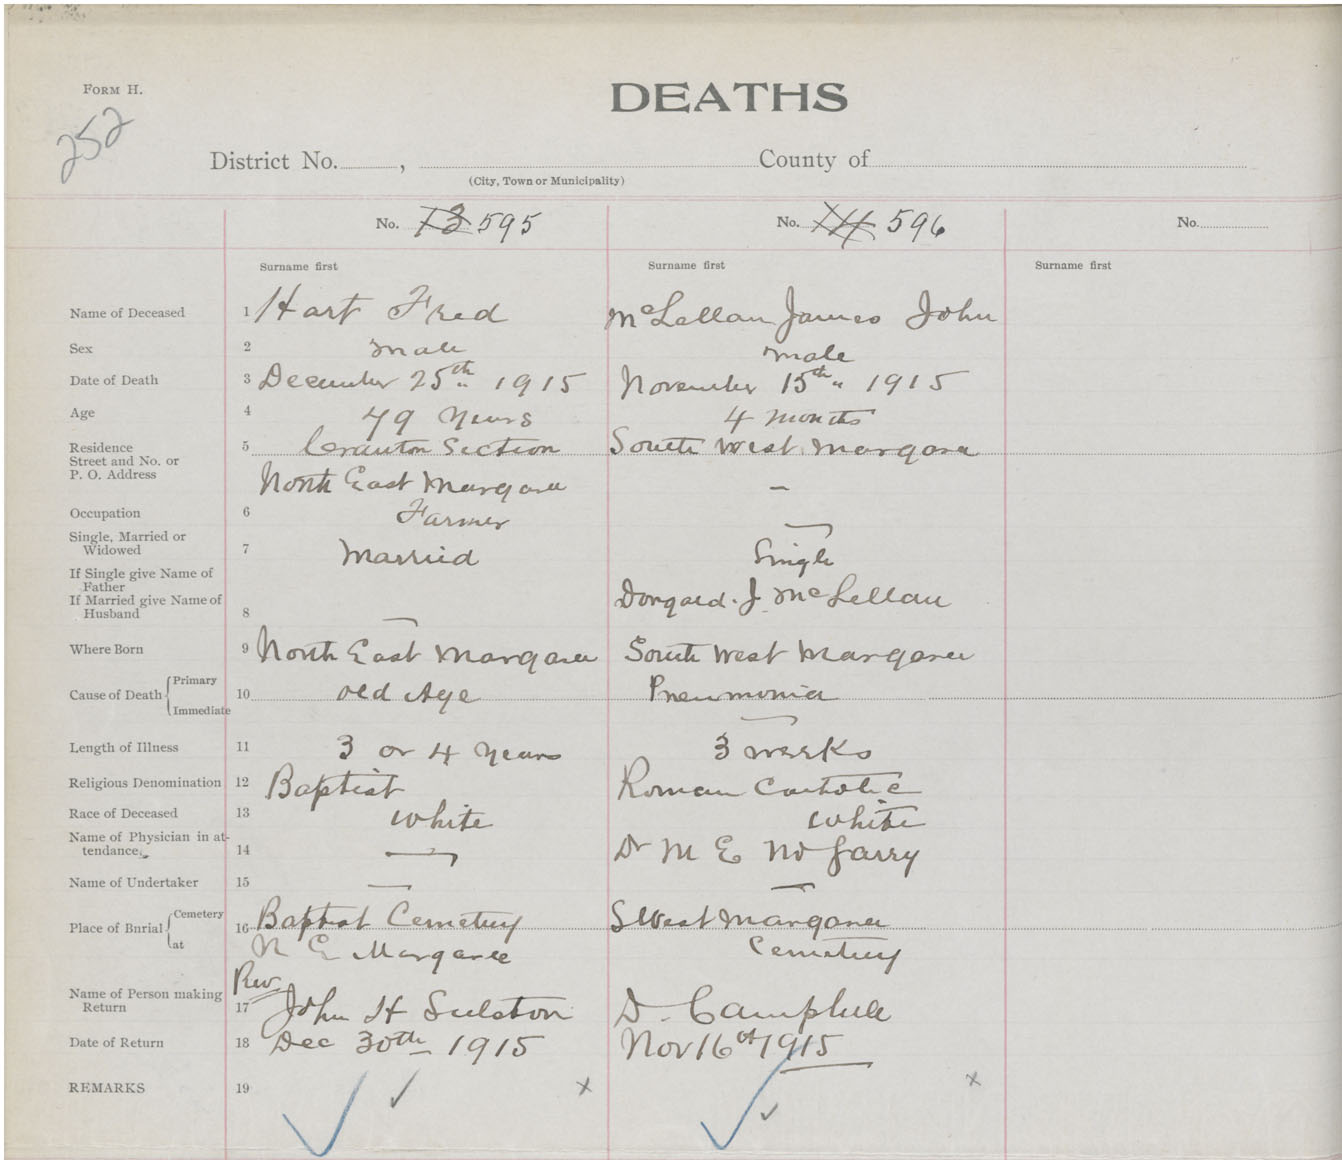 FORM H.
DEATHS
252
District No. , County of
(City, Town or Municipality)
No. 13 595 No. 14 596 No.
Surname first Surname first Surname first
Name of Deceased 1 Hart Fred McLellan James John
Sex 2 male male
Date of Death 3 December 25th 1915 November 15th 1915
Age 4 79 Years 4 months
Residence 5 Cranton Section South West Margaree
Street and No. or
P. O. Address North East Margaree –
Occupation 6 Farmer —
Single, Married or
Widowed 7 Married Single
If Single give Name of
Father
If Married give Name of Dongald. J. McLellan
Husband 8 —
Where Born 9 North East Margaree South West Margaree
Cause of Death Primary 10 old Age Pneumonia
Immediate —
Length of Illness 11 3 or 4 Years 3 weeks
Religious Denomination 12 Baptist Roman Catholic
Race of Deceased 13 White White
Name of Physician in at-
tendance. 14 — Dr M E
Name of Undertaker 15 — —
Place of Burial Cemetery 16 Baptist Cemetery S West Margaree
at N E Margaree Cemetery
Rev
Name of Person making
Return 17 John H D. Campbell
Date of Return 18 Dec 30th 1915 Nov 16th 1915
REMARKS 19 x x